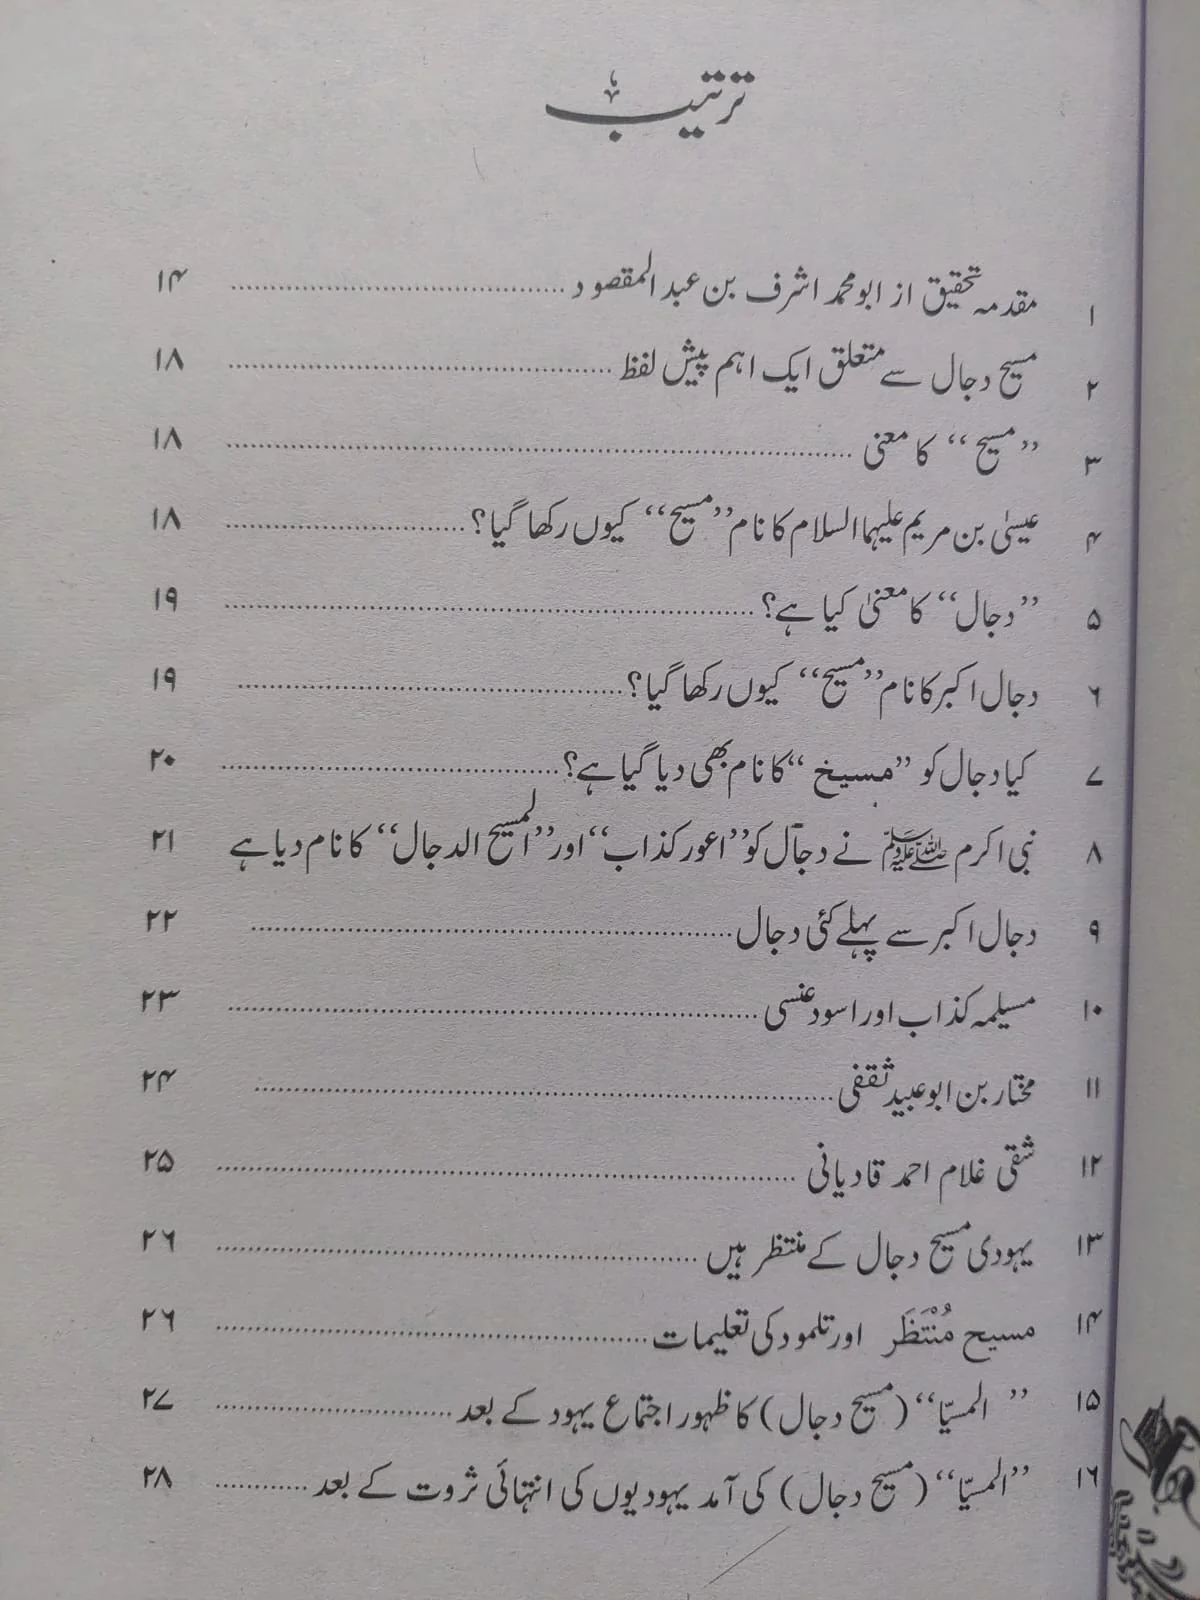 ترتیب
۱ مقدمہ تحقیق از ابو محمد اشرف بن عبد المقصود ۱۴
۲ مسیح دجال سے متعلق ایک اہم پیش لفظ ۱۸
۳ ”مسیح“ کا معنی ۱۸
۴ عیسیٰ بن مریم علیہما السلام کا نام ”مسیح“ کیوں رکھا گیا؟ ۱۸
۵ ”دجال“ کا معنیٰ کیا ہے؟ ۱۹
۶ دجال اکبر کا نام ”مسیح“ کیوں رکھا گیا؟ ۱۹
۷ کیا دجال کو ”مسیخ“ کا نام بھی دیا گیا ہے؟ ۲۰
۸ نبی اکرم ﷺ نے دجال کو ”اعور کذاب“ اور ”المسیح الدجال“ کا نام دیا ہے ۲۱
۹ دجال اکبر سے پہلے کئی دجال ۲۲
۱۰ مسیلمہ کذاب اور اسود عنسی ۲۳
۱۱ مختار بن ابو عبید ثقفی ۲۴
۱۲ شقی غلام احمد قادیانی ۲۵
۱۳ یہودی مسیح دجال کے منتظر ہیں ۲۶
۱۴ مسیح مُنْتَظَر اور تلمود کی تعلیمات ۲۶
۱۵ ”المسیّا“ (مسیح دجال) کا ظہور اجتماع یہود کے بعد ۲۷
۱۶ ”المسیّا“ (مسیح دجال) کی آمد یہودیوں کی انتہائی ثروت کے بعد ۲۸